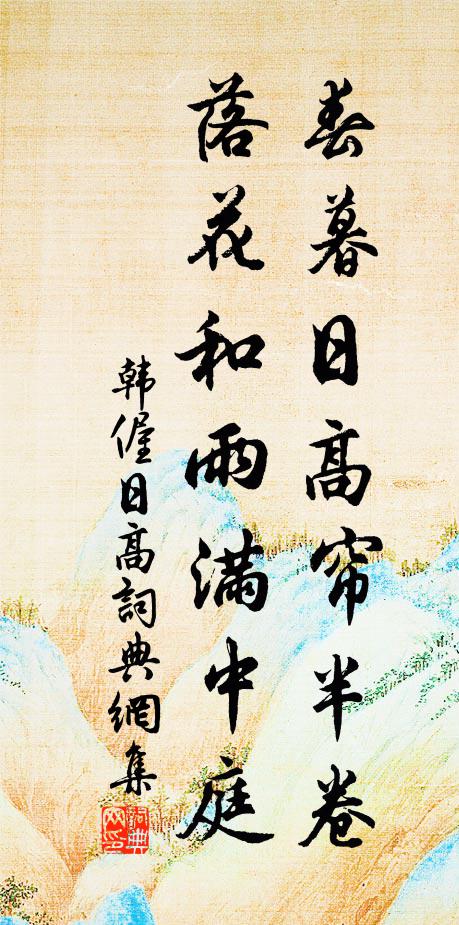 春暮日高帘半卷
落花和雨滿中庭
韩偓日高詞典網集
詞典
网印